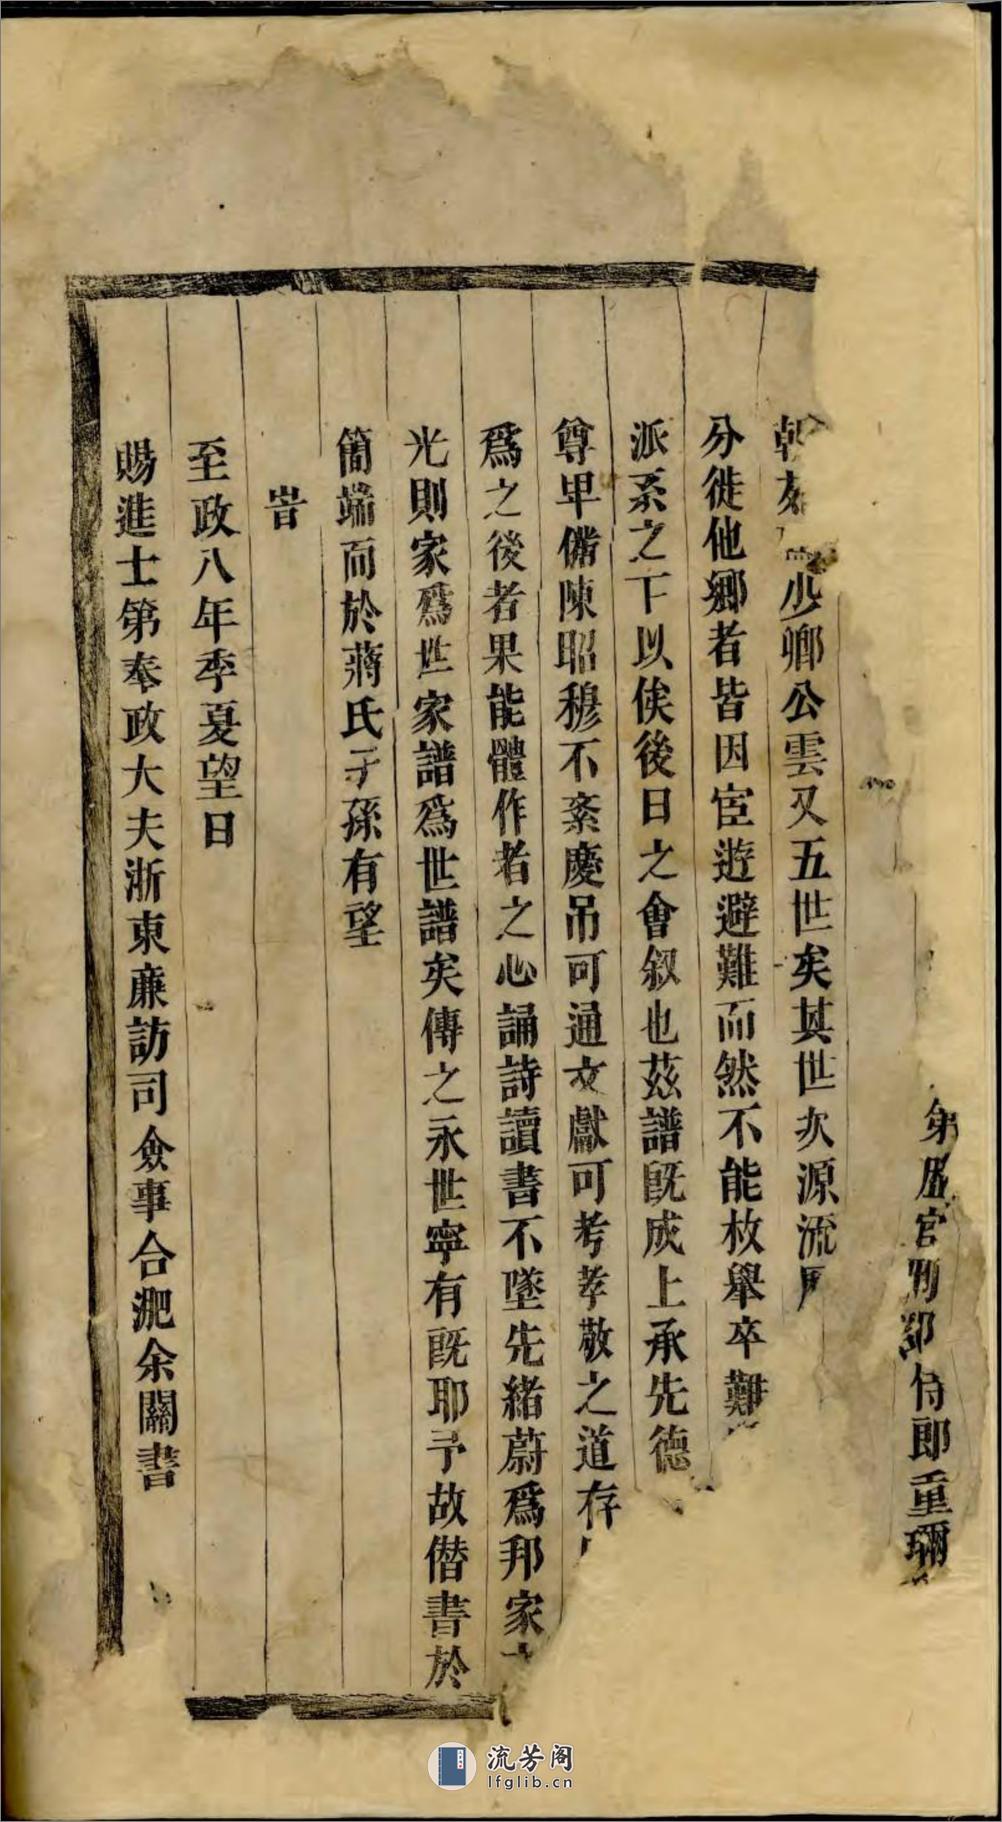 第歴官刑部侍郎重珎
朝 少卿公雲又五世矣其世次源流
分徙他鄉者皆因宦遊避難而然不能枚舉卒難
派系之下以俟後日之會叙也茲譜既成上承先德
尊甲偹陳昭穆不紊慶吊可通文獻可考孝敬之道存
爲之後者果能體作者之心誦詩讀書不墜先緒蔚爲邦家
光則家爲世家譜爲世譜矣傳之永世寧有既耶予故僣書於
簡端而於蔣氏子孫有望
旹
至政八年季夏望日
賜進士第奉政大夫浙東廉訪司僉事合淝余闗書
流芳阁
lfglib.cn